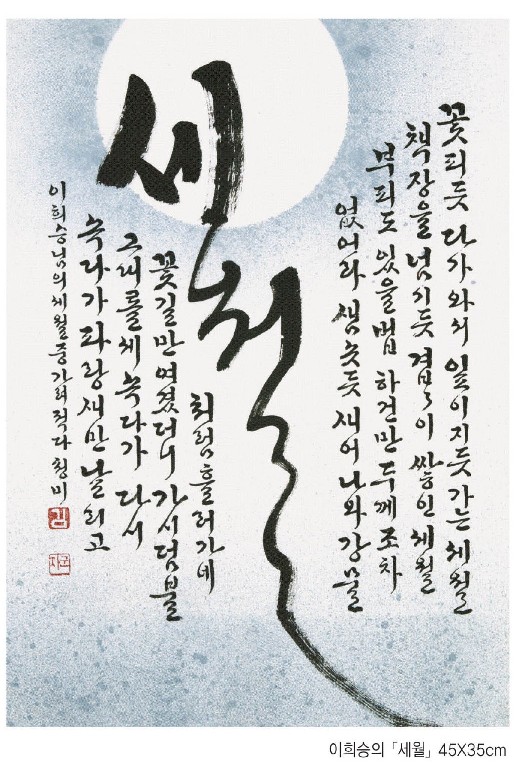 세월
꽃피듯 다가와서 잎이지듯 가는 세월
책장을 넘기듯 겹겹이 쌓인 세월
부피도 있을법 하건만 두께조차
없어라 샘솟듯 새어나와 강물
처럼 흘러가네
꽃길만 여겼더니 가시덤불
속다가 다시
속다가 파랑새만 날리고
이희승님의 세월 중 가려적다 청미
이희승의 「세월」 45X35cm